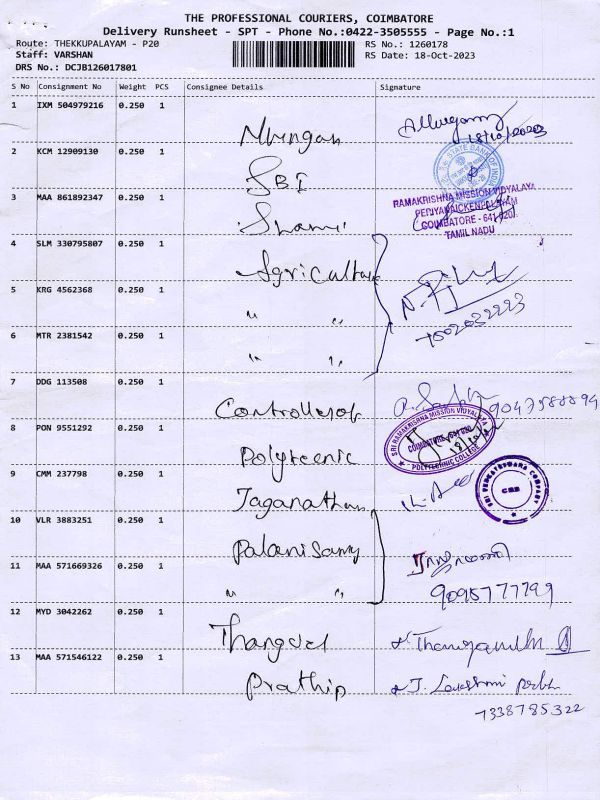 THE PROFESSIONAL COURIERS, COIMBATORE
Delivery Runsheet - SPT - Phone No.:0422-3505555 - Page No.:1
Route: THEKKUPALAYAM - P20
RS No.: 1260178
Staff: VARSHAN
RS Date: 18-Oct-2023
DRS No.: DCJB126017801
S No Consignment No Weight PCS Consignee Details Signature
1 IXM 504979216 0.250 1
18/10/2023
2 KCM 12909130 0.250 1
SBI
STATE BANK OF INDIA
3 MAA 861892347 0.250 1
RAMAKRISHNA MISSION VIDYALAYA
PERIYANAICKENPALAYAM
COIMBATORE - 641 020.
TAMIL NADU
4 SLM 330795807 0.250 1
Agriculture
5 KRG 4562368 0.250 1
" "
6 MTR 2381542 0.250 1
" "
7 DDG 113508 0.250 1
Controllerof
8 PON 9551292 0.250 1
SRI RAMAKRISHNA MISSION VIDYALAYA
COIMBATORE - 641 020
POLYTECHNIC COLLEGE
Polyteenic
9 CMM 237798 0.250 1
Jaganathan
SRI VENKATESWARA COMPANY
CBE
10 VLR 3883251 0.250 1
Palanisamy
11 MAA 571669326 0.250 1
" "
9095777799
12 MYD 3042262 0.250 1
Thangavel
13 MAA 571546122 0.250 1
Prathip
J. Lakshmi
7338785322